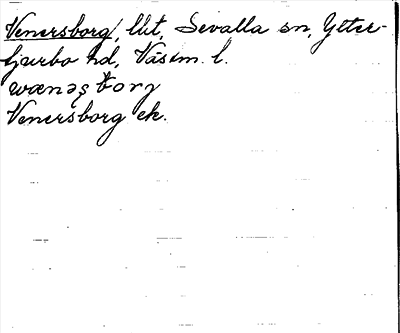 Venersborg, lht, Sevalla sn, Ytter-
tjurbo hd, Västm. l.
wænəʂborj
Venersborg ek.